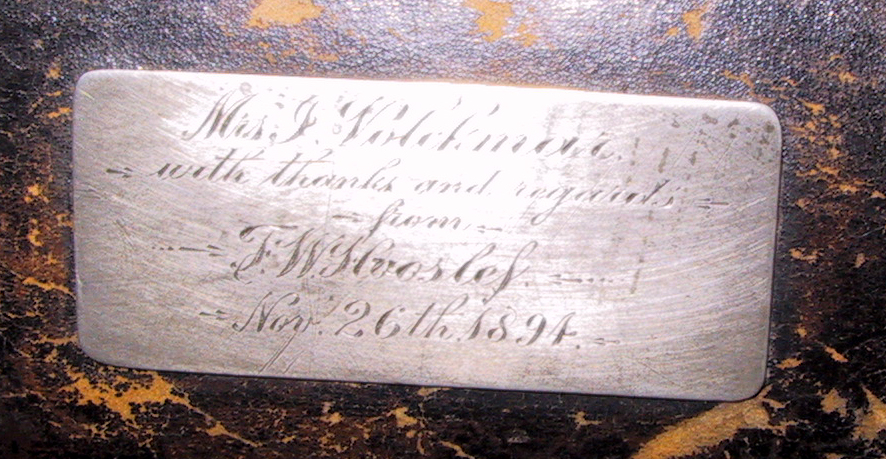 Mrs. J. Volckmar.
with thanks and regards
from
F. W. Hvoslef.
Nov. 26th 1894.